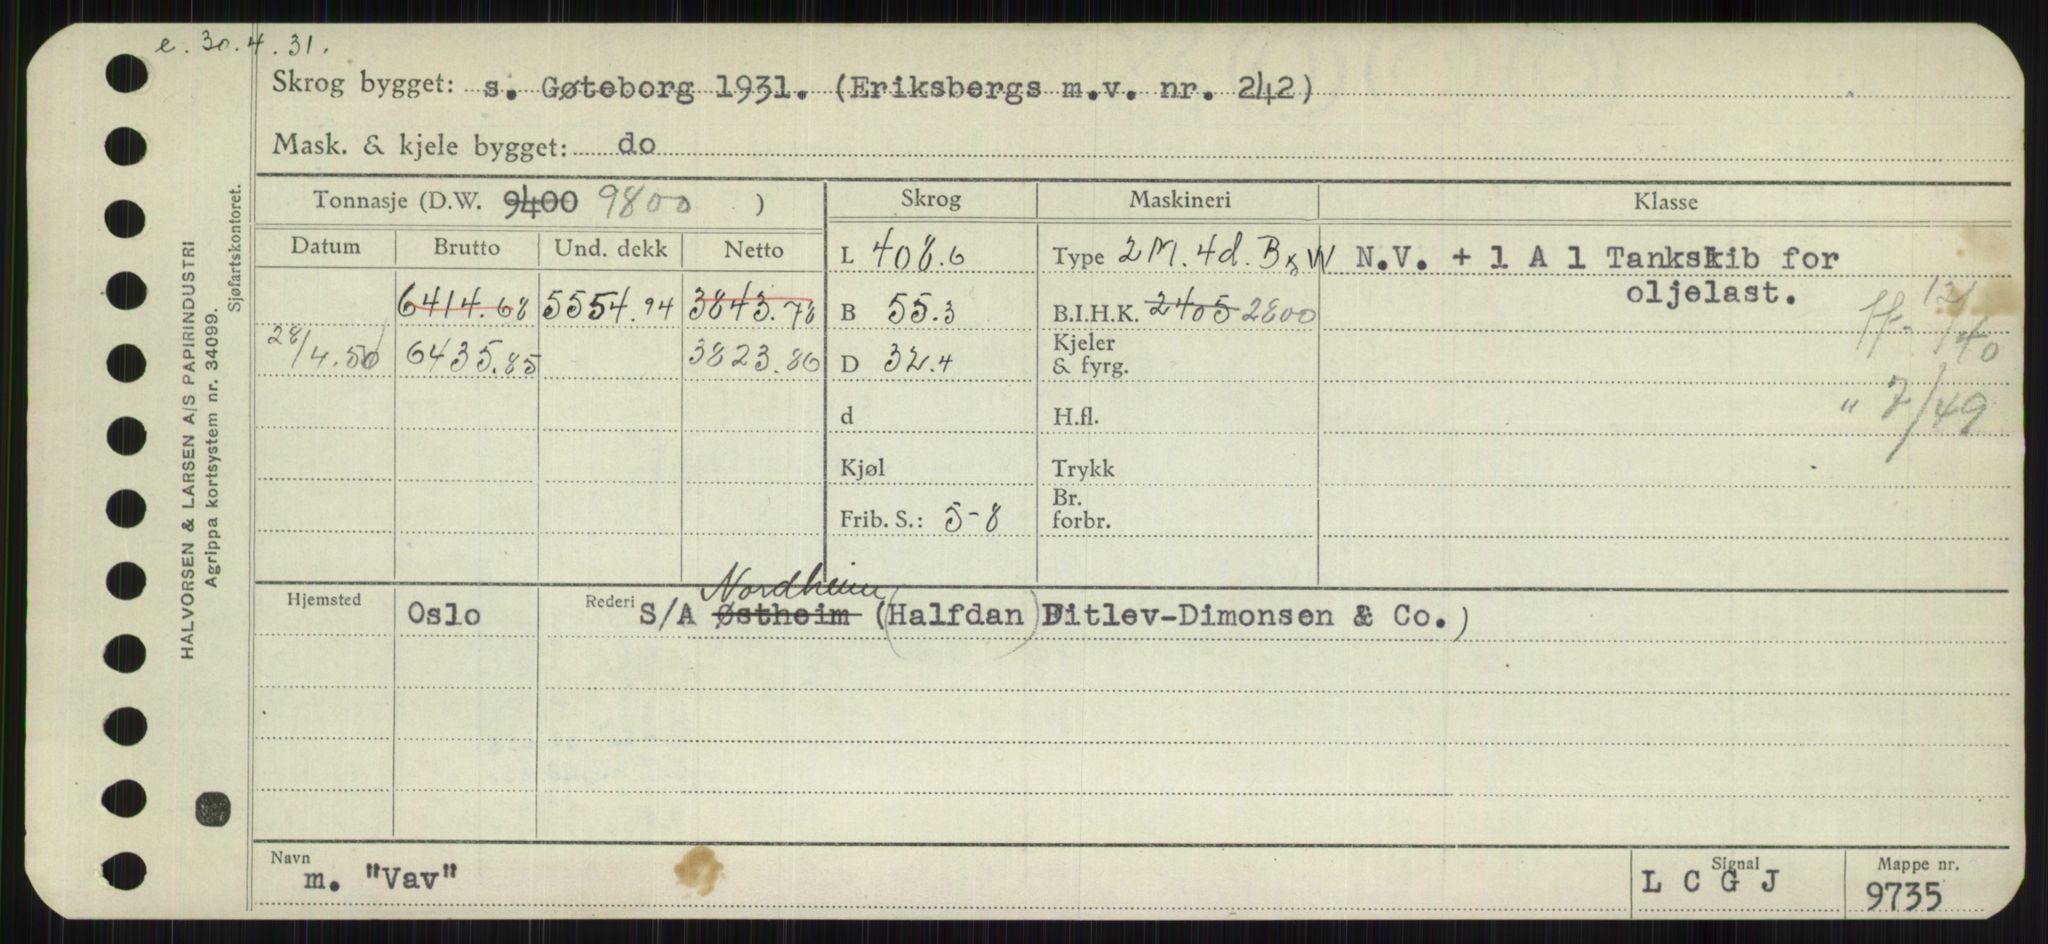 e. 30.4.31.
Skrog bygget: s. Gøteborg 1931. (Eriksbergs m.v. nr. 242)
Mask. & kjele bygget: do
Tonnasje (D.W. 9400 9800 )
Skrog Maskineri Klasse
Datum Brutto Und. dekk Netto
L 408.6 Type 2 M. 4d. B & W N.V. + 1 A 1 Tankskib for
oljelast.
6414.68 5554.94 3843.78 B 55.3 B.I.H.K. 2405 2800
ff. 12/40
28/4.50 6435.85 3823.80 D 32.4 Kjeler
& fyrg.
d H.fl. " 7/49
Kjøl Trykk
Frib. S.: 5-8 Br.
forbr.
Nordheim
Hjemsted Oslo Rederi S/A Østheim (Halfdan) Ditlev-Dimonsen & Co.)
Navn m. "Vav"
Signal L C G J
Mappe nr. 9735
HALVORSEN & LARSEN A/S PAPIRINDUSTRI
Agrippa kortsystem nr. 34099.
Sjøfartskontoret.